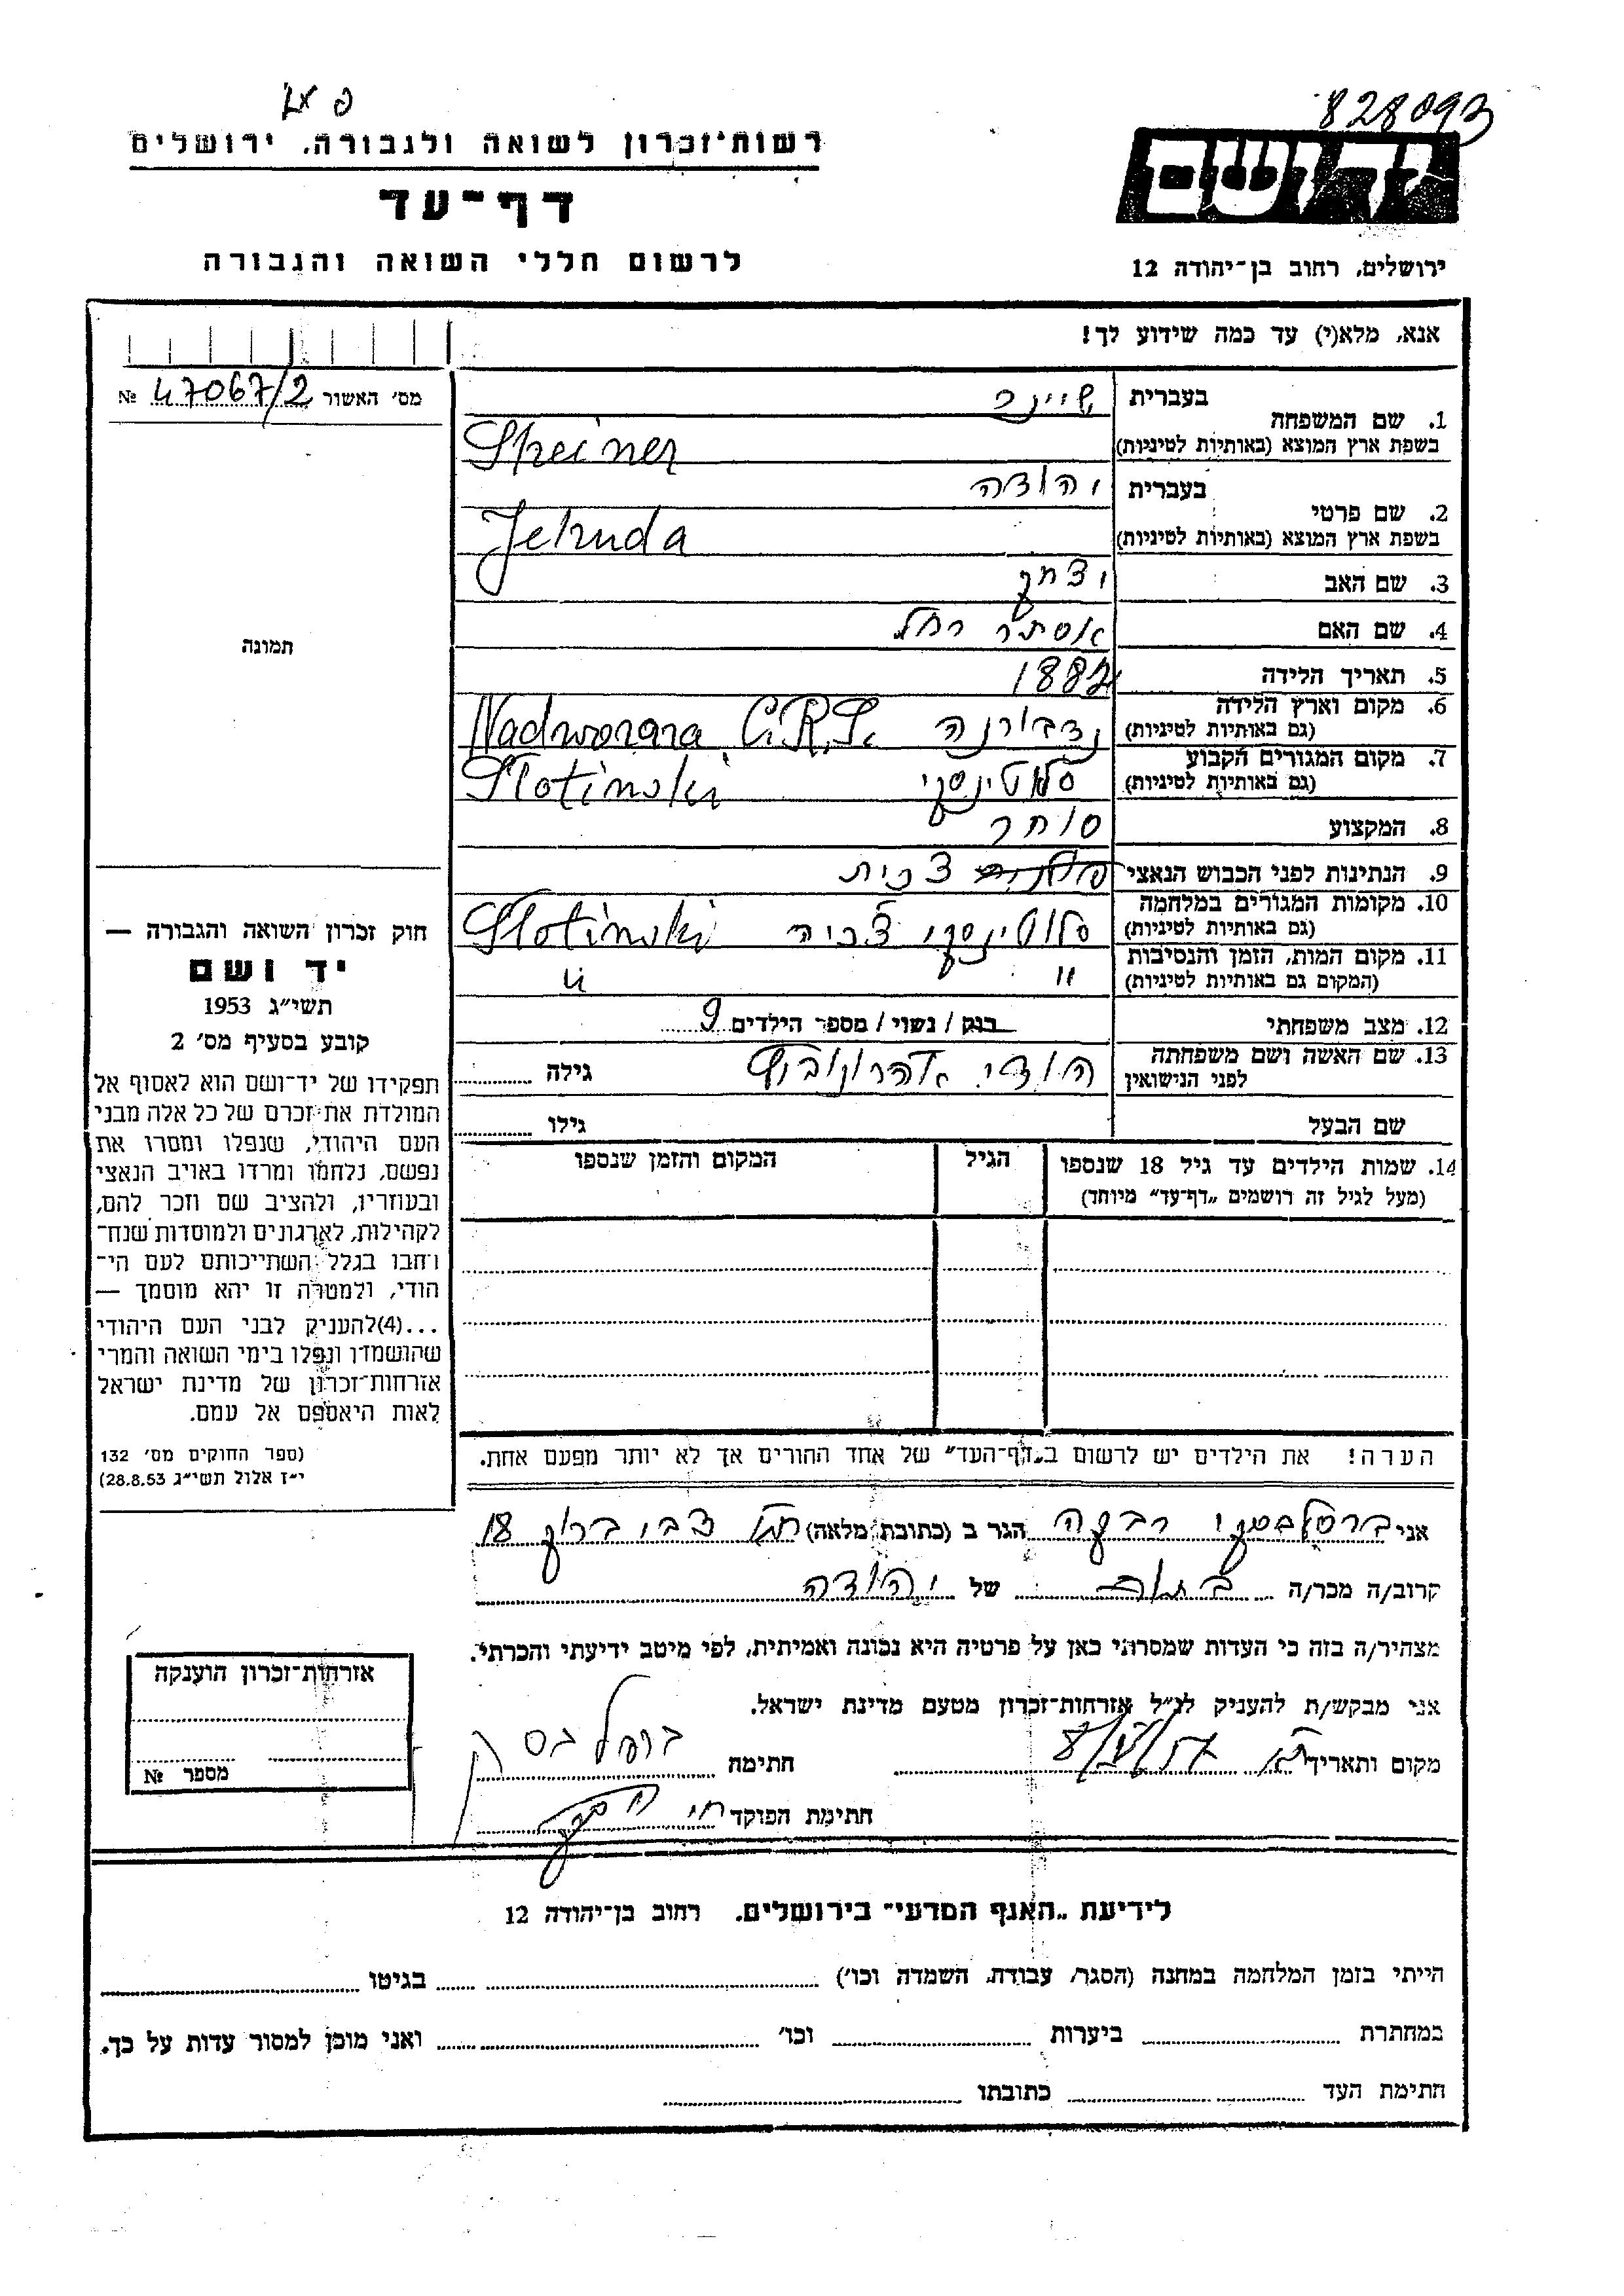 828093
רשות־זכרון לשואה ולגבורה, ירושלים
דף־עד
לרשום חללי השואה והגבורה
יד ושם
ירושלים, רחוב בן־יהודה 12
אנא, מלא(י) עד כמה שידוע לך!
מס׳ האשור 47067/2 №
תמונה
1. שם המשפחה
בעברית שיינר
בשפת ארץ המוצא (באותיות לטיניות) Steiner
2. שם פרטי
בעברית יהודה
בשפת ארץ המוצא (באותיות לטיניות) Jehuda
3. שם האב יצחק
4. שם האם אסתר רחל
5. תאריך הלידה 1882
6. מקום וארץ הלידה
(גם באותיות לטיניות) נדבורנה Nadworara
7. מקום המגורים הקבוע
(גם באותיות לטיניות) סלוטינסקי Slotinski
8. המקצוע סוחר
9. הנתינות לפני הכבוש הנאצי צ׳כית
10. מקומות המגורים במלחמה
(גם באותיות לטיניות) סלוטינסקי צ׳כיה Slotinski
11. מקום המות, הזמן והנסיבות
(המקום גם באותיות לטיניות) " "
12. מצב משפחתי רווק / נשוי / מספר הילדים 9
13. שם האשה ושם משפחתה
לפני הנישואין הודי אהרונוביץ גילה
שם הבעל גילו
14. שמות הילדים עד גיל 18 שנספו
(מעל לגיל זה רושמים „דף־עד” מיוחד)
הגיל
המקום והזמן שנספו
הערה! את הילדים יש לרשום ב„דף־העד” של אחד ההורים אך לא יותר מפעם אחת.
חוק זכרון השואה והגבורה —
יד ושם
תשי״ג 1953
קובע בסעיף מס׳ 2
תפקידו של יד־ושם הוא לאסוף אל
המולדת את זכרם של כל אלה מבני
העם היהודי, שנפלו ומסרו את
נפשם, נלחמו ומרדו באויב הנאצי
ובעוזריו, ולהציב שם וזכר להם,
לקהילות, לארגונים ולמוסדות שנח־
רחבו בגלל השתייכותם לעם הי־
הודי, ולמטרה זו יהא מוסמך —
...(4)להעניק לבני העם היהודי
שהושמדו ונפלו בימי השואה והמרי
אזרחות־זכרון של מדינת ישראל
לאות היאספם אל עמם.
(ספר החוקים מס׳ 132
י״ז אלול תשי״ג 28.8.53)
אני ברסלבסקי רבקה הגר ב (כתובת מלאה) צבי ברוק 18
קרוב/ה מכר/ה של יהודה
מצהיר/ה בזה כי העדות שמסרתי כאן על פרטיה היא נכונה ואמיתית, לפי מיטב ידיעתי והכרתי.
אני מבקש/ת להעניק לנ״ל אזרחות־זכרון מטעם מדינת ישראל.
מקום ותאריך חתימה
חתימת הפוקד
אזרחות־זכרון הוענקה
מספר №
לידיעת „האגף המדעי” בירושלים, רחוב בן־יהודה 12
הייתי בזמן המלחמה במחנה (הסגר, עבודה, השמדה וכו׳) בגיטו
במחתרת ביערות וכו׳ ואני מוכן למסור עדות על כך.
חתימת העד כתובתו